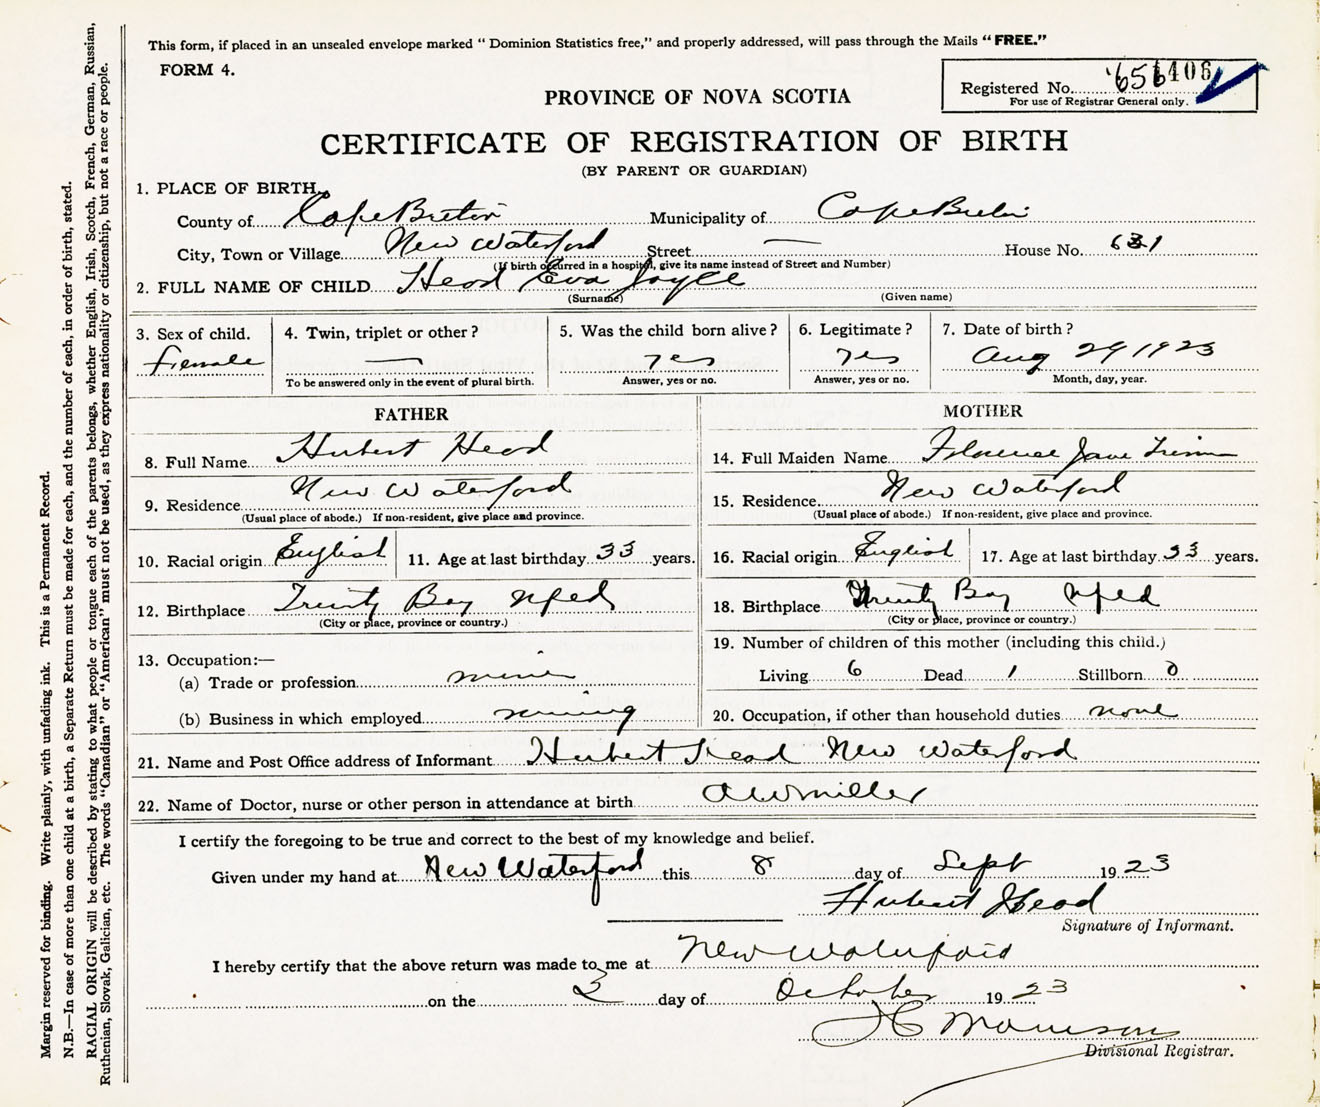 This form, if placed in an unsealed envelope marked “Dominion Statistics free,” and properly addressed, will pass through the Mails “FREE.”
FORM 4.
Registered No. 656406
For use of Registrar General only.
PROVINCE OF NOVA SCOTIA
CERTIFICATE OF REGISTRATION OF BIRTH
(BY PARENT OR GUARDIAN)
1. PLACE OF BIRTH
County of Cape Breton Municipality of Cape Breton
City, Town or Village New Waterford Street — House No. 631
(If birth occurred in a hospital, give its name instead of Street and Number)
2. FULL NAME OF CHILD Head Eva Joyce
(Surname) (Given name)
3. Sex of child. 4. Twin, triplet or other? 5. Was the child born alive? 6. Legitimate? 7. Date of birth?
Female — yes yes Aug 29 1923
To be answered only in the event of plural birth. Answer, yes or no. Answer, yes or no. Month, day, year.
FATHER
8. Full Name Hubert Head
9. Residence New Waterford
(Usual place of abode.) If non-resident, give place and province.
10. Racial origin English 11. Age at last birthday 33 years.
12. Birthplace Trinity Bay Nfld
(City or place, province or country.)
13. Occupation:—
(a) Trade or profession miner
(b) Business in which employed mining
MOTHER
14. Full Maiden Name Florence Jane
15. Residence New Waterford
(Usual place of abode.) If non-resident, give place and province.
16. Racial origin English 17. Age at last birthday 33 years.
18. Birthplace Trinity Bay Nfld
(City or place, province or country.)
19. Number of children of this mother (including this child.)
Living 6 Dead 1 Stillborn 0
20. Occupation, if other than household duties none
21. Name and Post Office address of Informant Hubert Head New Waterford
22. Name of Doctor, nurse or other person in attendance at birth A W Miller
I certify the foregoing to be true and correct to the best of my knowledge and belief.
Given under my hand at New Waterford this 8 day of Sept 1923
Hubert Head
Signature of Informant.
I hereby certify that the above return was made to me at New Waterford
on the 2 day of October 1923
Morrison
Divisional Registrar.
Margin reserved for binding. Write plainly, with unfading ink. This is a Permanent Record.
N.B.—In case of more than one child at a birth, a Separate Return must be made for each, and the number of each, in order of birth, stated.
RACIAL ORIGIN will be described by stating to what people or tongue each of the parents belongs, whether English, Irish, Scotch, French, German, Russian,
Ruthenian, Slovak, Galician, etc. The words “Canadian” or “American” must not be used, as they express nationality or citizenship, but not a race or people.